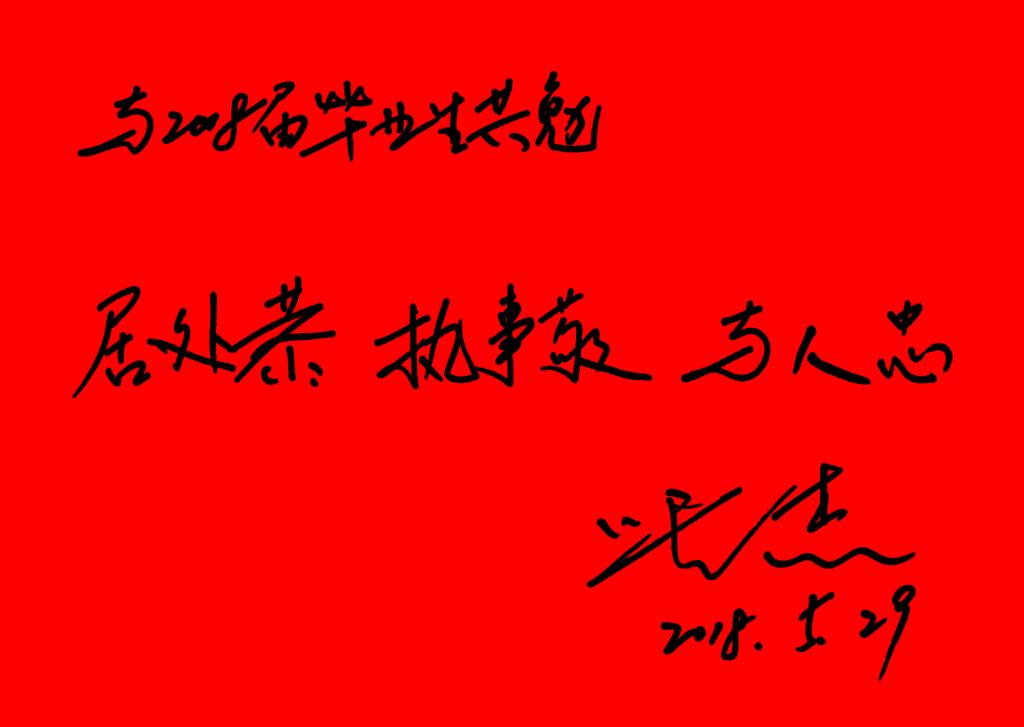 与2018届毕业生共勉
居处恭 执事敬 与人忠
2018.5.29